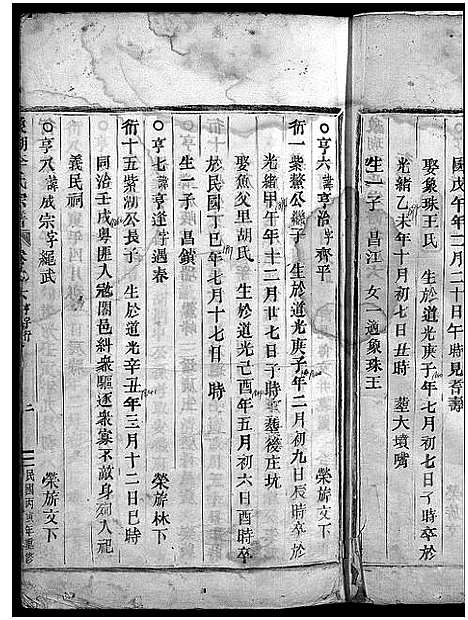 國戊午年二月二十日午時見者壽
娶象珠王氏 生於道光庚子年七月初七日子時卒於
光緒乙未年十月初七日丑時 塟大墳嘴
生一子 昌江 女一適象珠王
○亨六諱亨治字齊平 榮旂文下
衍一紫鰲公繼子 生於道光庚子年二月初九日辰時卒於
光緒甲午年十二月廿七日子時塟後庄坑
娶魚父里胡氏 生於道光己酉年五月初六日酉時卒
於民國丁巳年七月十七日 時
生一子 昌鎮
○亨七諱亨逢字遇春 榮旂林下
衍十五紫湖公長子 生於道光辛丑年三月十二日巳時
同治壬戌粤匪入寇闔邑糾衆驅逐衆寡不敵身殉入祀
義民祠
○亨八諱成宗字繩武 榮旂文下
二
民國丙寅年重修